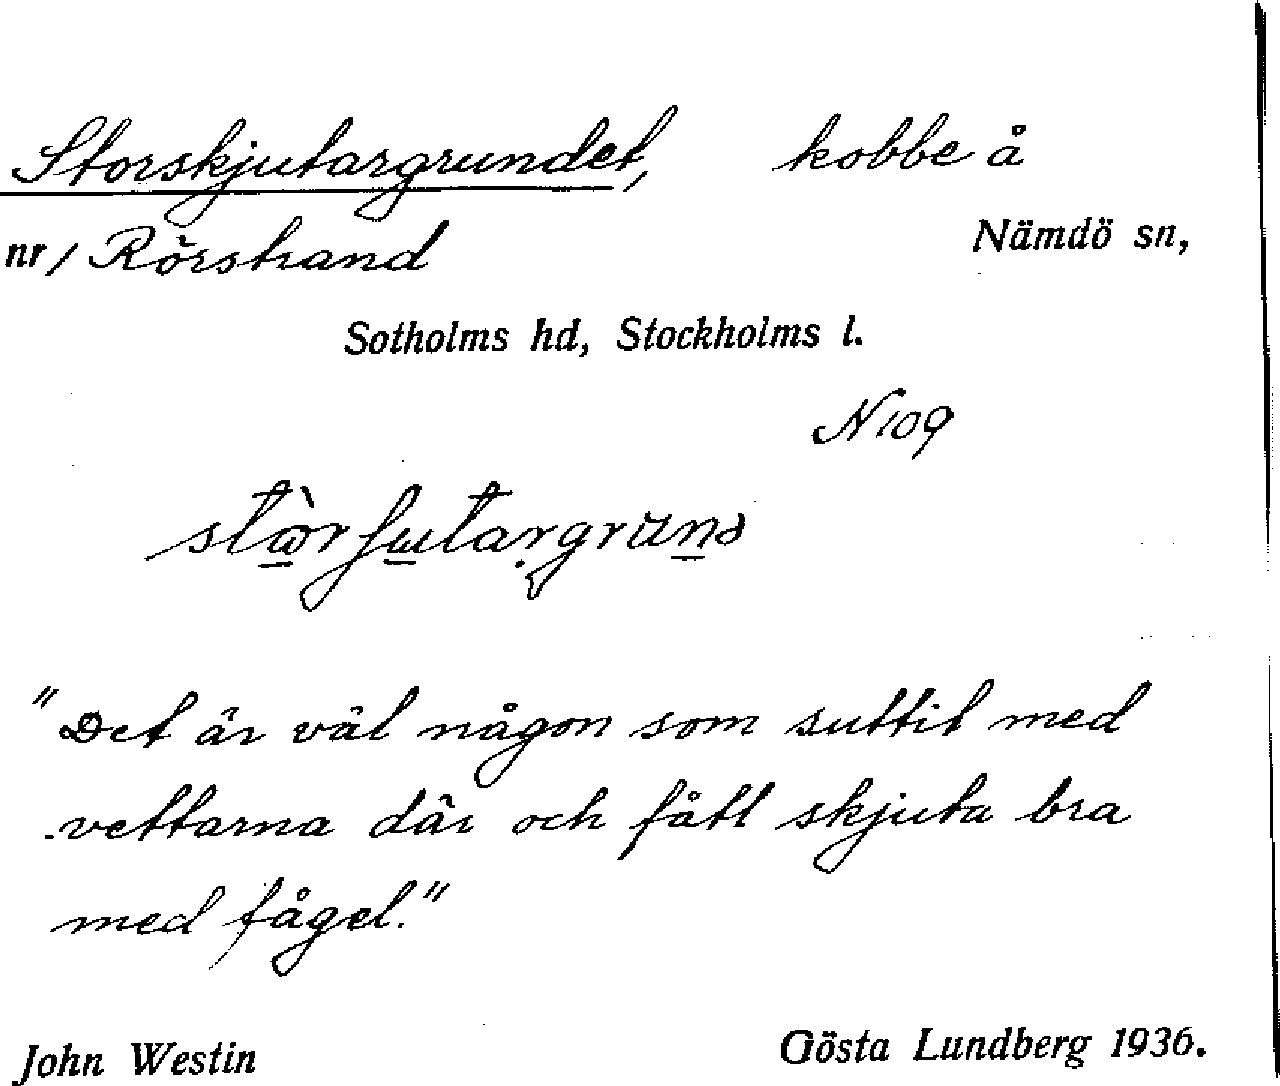 Storskjutargrundet, kobbe å
nr/ Rörstrand Nämdö sn,
Sotholms hd, Stockholms l.
N 109
"Det är väl någon som suttit med
vettarna där och fått skjuta bra
med fågel."
John Westin Gösta Lundberg 1936.